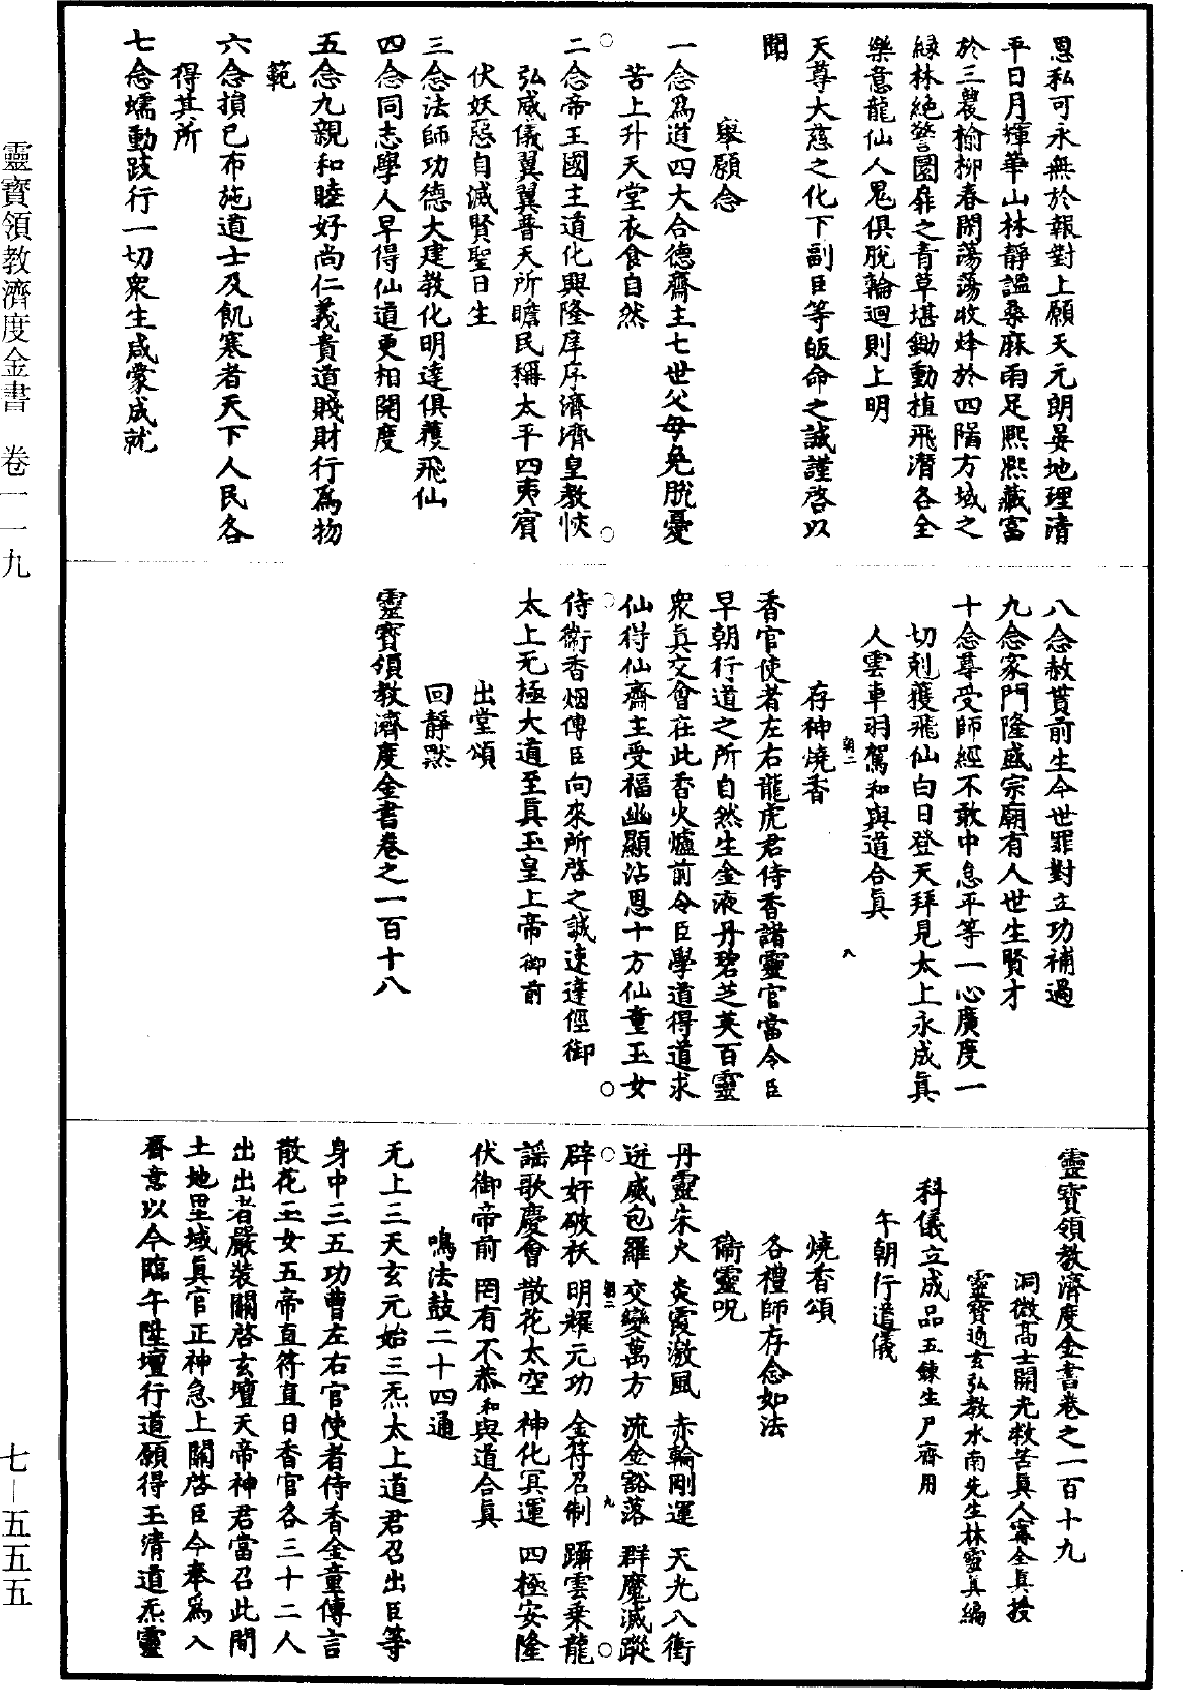 恩私可永無於報對上願天元朗晏地理清
平日月揮華山林靜謐桑麻雨足熙熙藏富
於三農榆柳春閑蕩蕩收烽於四陲方域之
綠林絕警園扉之青草堪鋤動植飛潛各全
樂意龍仙人鬼俱脫輪迴則上明
天尊大慈之化下副臣等皈命之誠謹啓以
聞
舉願念
一念爲道四大合德齋主七世父母免脫憂
苦上升天堂衣食自然
二念帝王國主道化興隆庠序濟濟皇教恢
弘威儀翼翼普天所瞻民稱太平四夷賓
伏妖惡自滅賢聖日生
三念法師功德大建教化明達俱獲飛仙
四念同志學人早得仙道更相開度
五念九親和睦好尚仁義貴道賤財行爲物
範
六念損已布施道士及飢寒者天下人民各
得其所
七念蠕動跂行一切衆生咸蒙成就
八念赦貰前生今世罪對立功補過
九念家門隆盛宗廟有人世生賢才
十念尊受師經不敢中怠平等一心廣度一
切剋獲飛仙白日登天拜見太上永成眞
人雲車羽駕和與道合眞
朝二 八
存神燒香
香官使者左右龍虎君侍香諸靈官當令臣
早朝行道之所自然生金液丹碧芝英百靈
衆眞交會在此香火爐前令臣學道得道求
仙得仙齋主受福幽顯沾恩十方仙童玉女
侍衞香烟傳臣向來所啓之誠速達徑御
太上无極大道至眞玉皇上帝御前
出堂頌
回靜默
靈寶領教濟度金書卷之一百十八
靈寶領教濟度金書卷之一百十九
洞微高士開光救苦眞人甯全眞授
靈寶通玄弘教水南先生林靈眞編
科儀立成品五鍊生尸齋用
午朝行道儀
燒香頌
各禮師存念如法
衞靈呪
丹靈朱火 炎霞激風 赤輪剛運 天光八衝
迸威包羅 交變萬方 流金豁落 群魔滅蹤
朝二 九
辟奸破祅 明耀元功 金符召制 躡雲乘龍
謠歌慶會 散花太空 神化冥運 四極安隆
伏御帝前 罔有不恭和與道合眞
鳴法鼓二十四通
无上三天玄元始三炁太上道君召出臣等
身中三五功曹左右官使者侍香金童傳言
散花玉女五帝直符直日香官各三十二人
出出者嚴裝關啓玄壇天帝神君當召此間
土地里域眞官正神急上關啓臣今奉爲入
齋意以今臨午陞壇行道願得玉清道炁靈
靈寶領教濟度金書 卷一一九
七—五五五